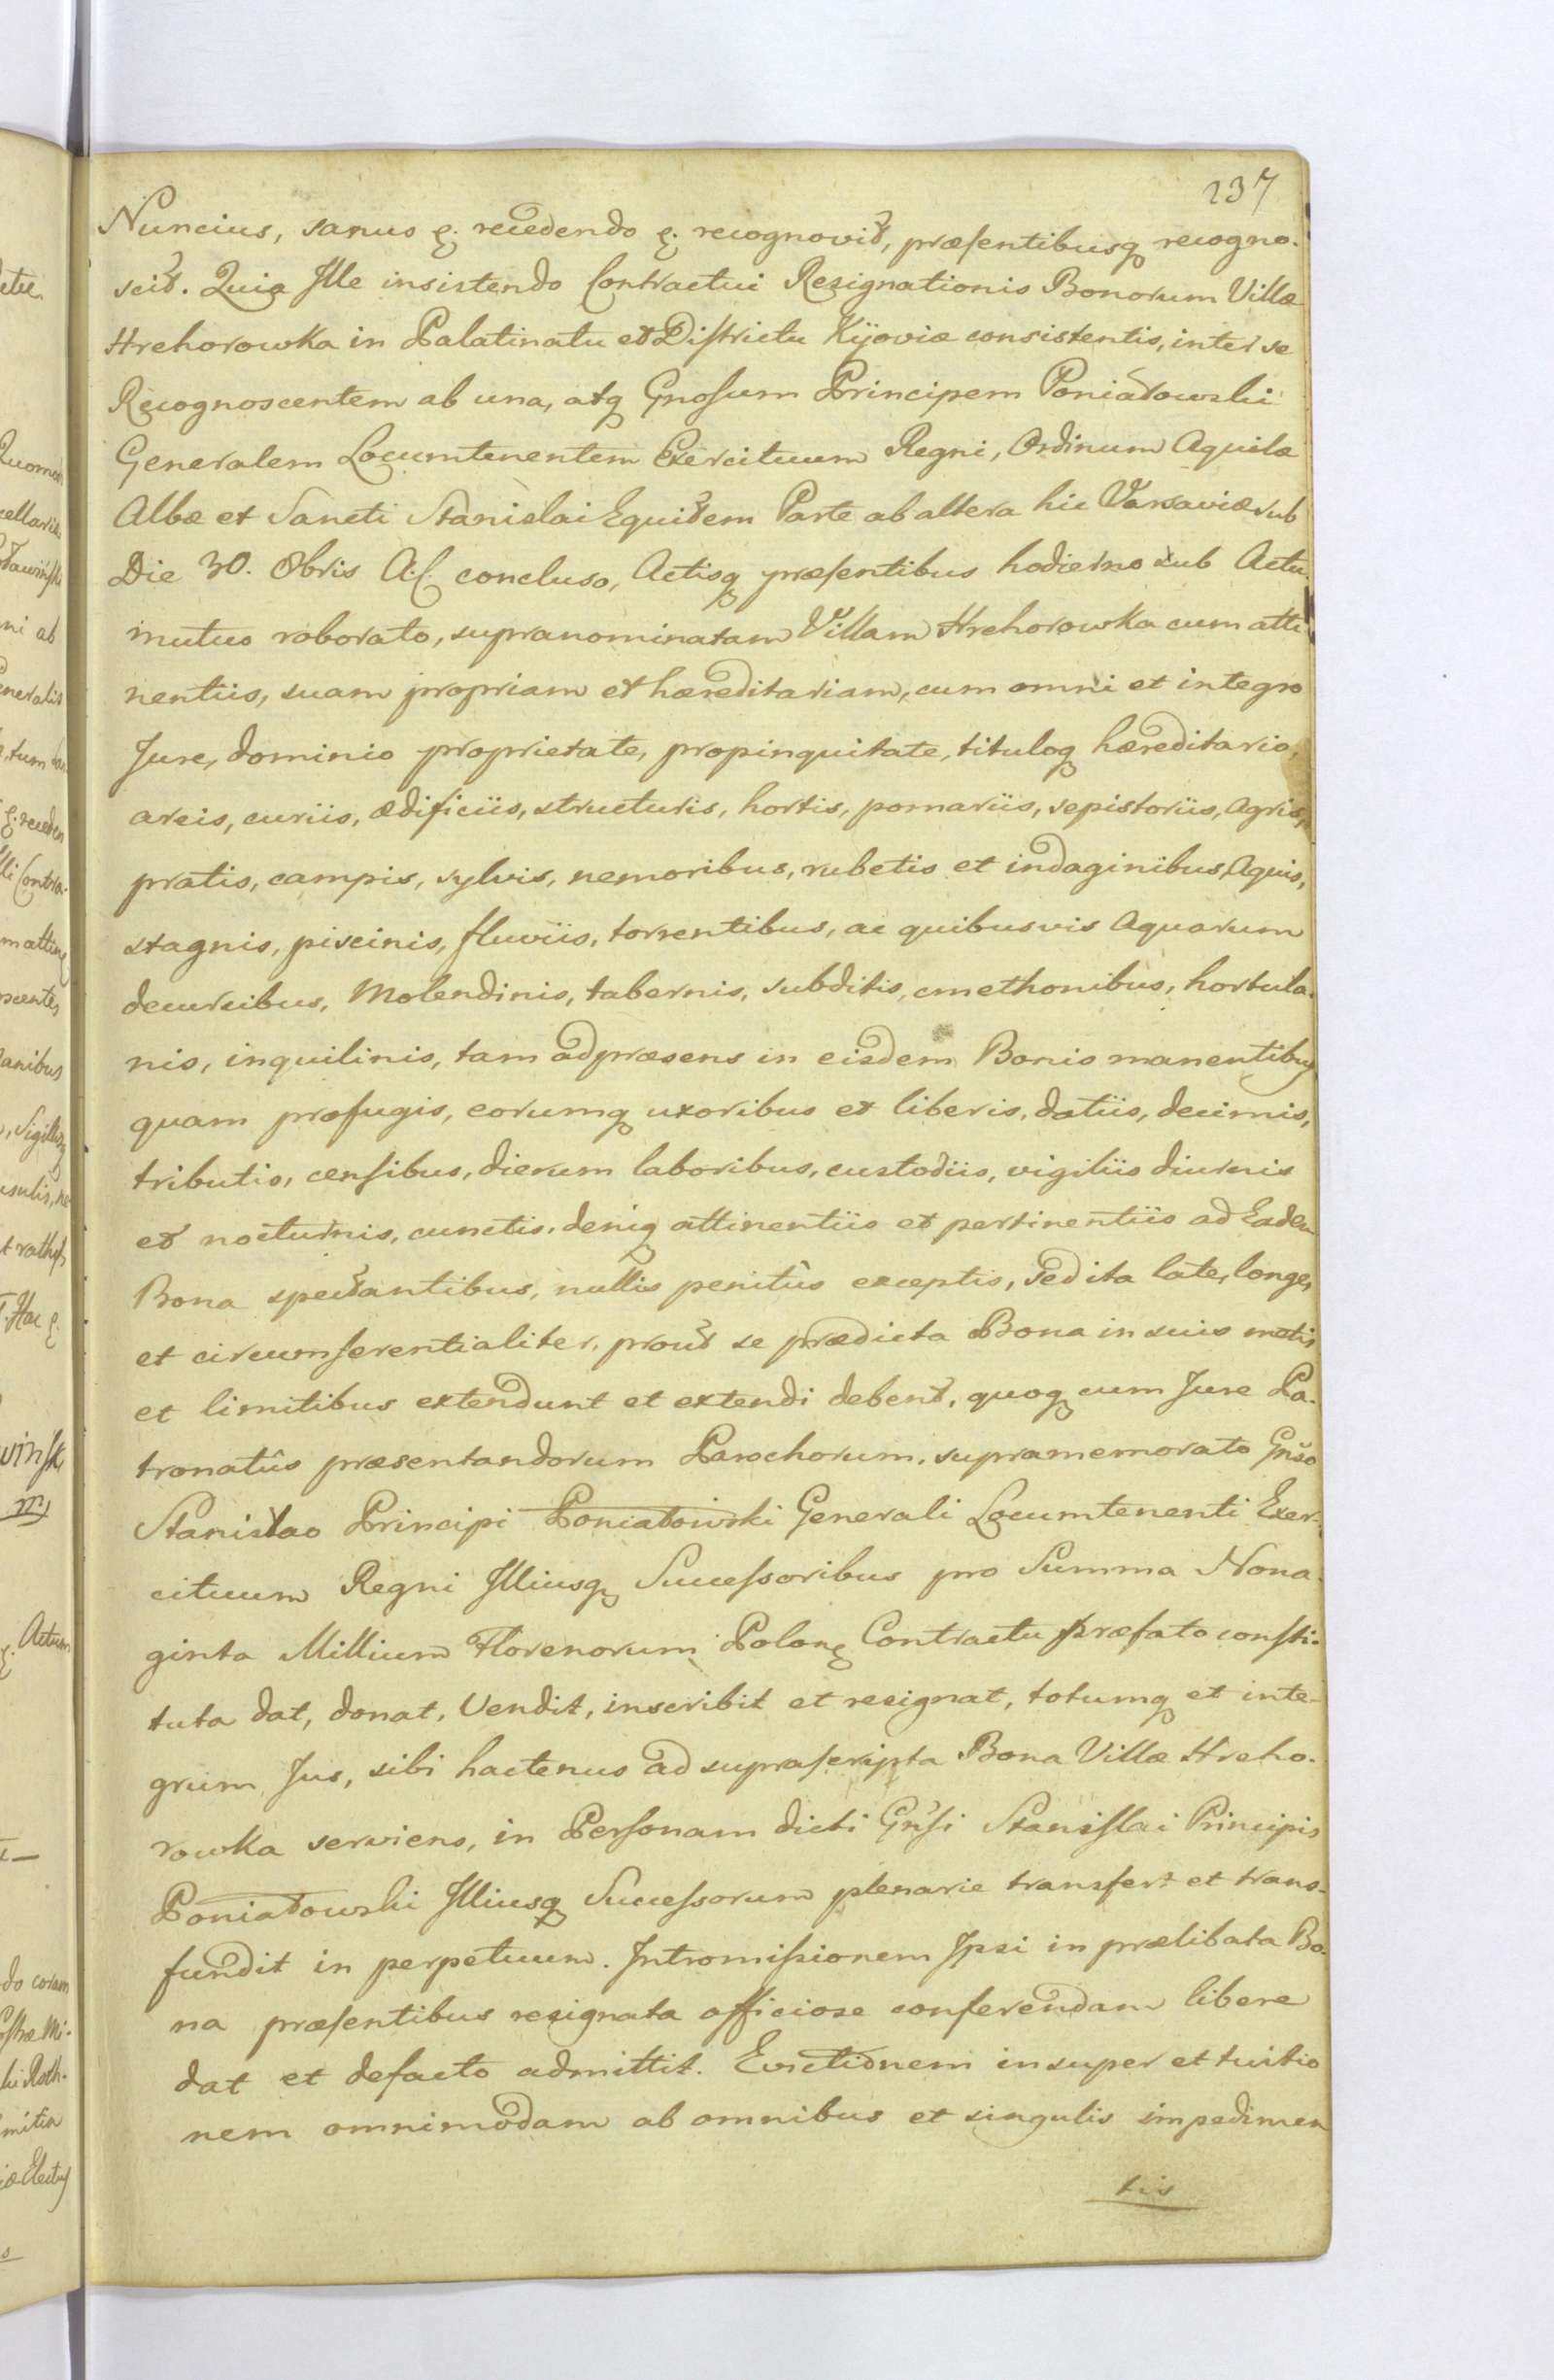 237
Nuncius, sanus &. recedendo &. recognovit, præsentibusq recogno-
scit. Quia Ille insistendo Contractui Resignationis Bonorum Villæ
Hrehorowka in Palatinatu et Districtu Kijoviæ consistentis, inter se
Recognoscentem ab una, atq Gnosum Principem Poniatowski
Generalem Locumtenentem Exercituum Regni, Ordinum Aquilæ
Albæ et Sancti Stanislai Equitem Parte ab altera hic Varsaviæ sub
Die 30. 8bris A.C. concluso, Actisq præsentibus hodierno sub Actu
mutuo roborato, supranominatam Villam Hrehorowka cum atti-
nentiis, suam propriam et hæreditariam, cum omni et integro
Jure, dominio proprietate, propinquitate, tituloq hæreditario,
areis, curiis, ædificiis, structuris, hortis, pomariis, sepistoriis, Agris,
pratis, campis, sylvis, nemoribus, rubetis et indaginibus, Aquis,
stagnis, piscinis, fluviis, torrentibus, ac quibusvis Aquarum
decursibus, Molendinis, tabernis, subditis, cmethonibus, hortula-
nis, inquilinis, tam ad præsens in eisdem Bonis manentibus
quam profugis, eorumq uxoribus et liberis, datiis, decimis,
tributis, censibus, dierum laboribus, custodiis, vigiliis diurnis
et nocturnis, cunctis deniq attinentiis et pertinentiis ad Eadem
Bona spectantibus, nullis penitûs exceptis, sed ita late, longe,
et circumferentialiter, prout se prædicta Bona in suis metis
et limitibus extendunt et extendi debent, quoq cum Jure Pa-
tronatûs præsentandorum Parochorum, supramemorato Gnso
Stanislao Principi Poniatowski Generali Locumtenenti Exer-
cituum Regni Illiusq Successoribus pro Summa Nona-
ginta Millium Florenorum Polon Contractu præfato consti-
tuta dat, donat, Vendit, inscribit et resignat, totumq et inte-
grum Jus, sibi hactenus ad suprascripta Bona Villæ Hreho-
rowka serviens, in Personam dicti Gnsi Stanislai Principis
Poniatowski Illiusq Successorum plenarie transfert et trans-
fundit in perpetuum. Intromissionem Ipsi in prælibata Bo-
na præsentibus resignata officiose conferendam libere
dat et defacto admittit. Evictionem insuper et tuitio
nem omnimodam ab omnibus et singulis impedimen
tis